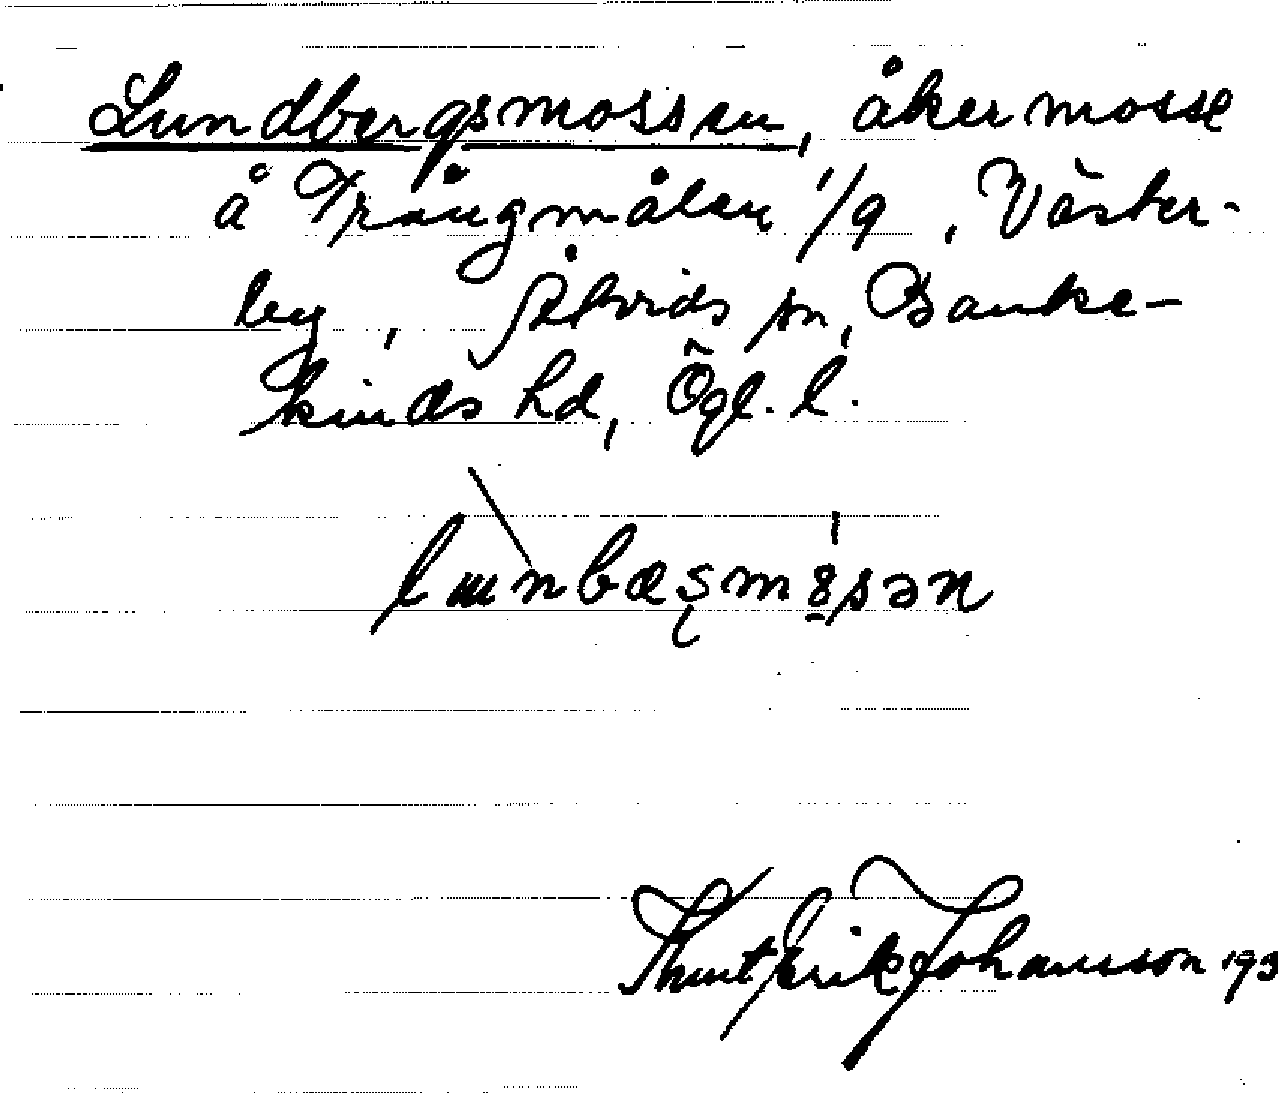 Lundbergsmossen, åkermosse
å Trångmålen 1/9, Väster-
by, Åtvids sn, Banke-
kinds hd, Ögl. l.
Knut Erik Johansson 193